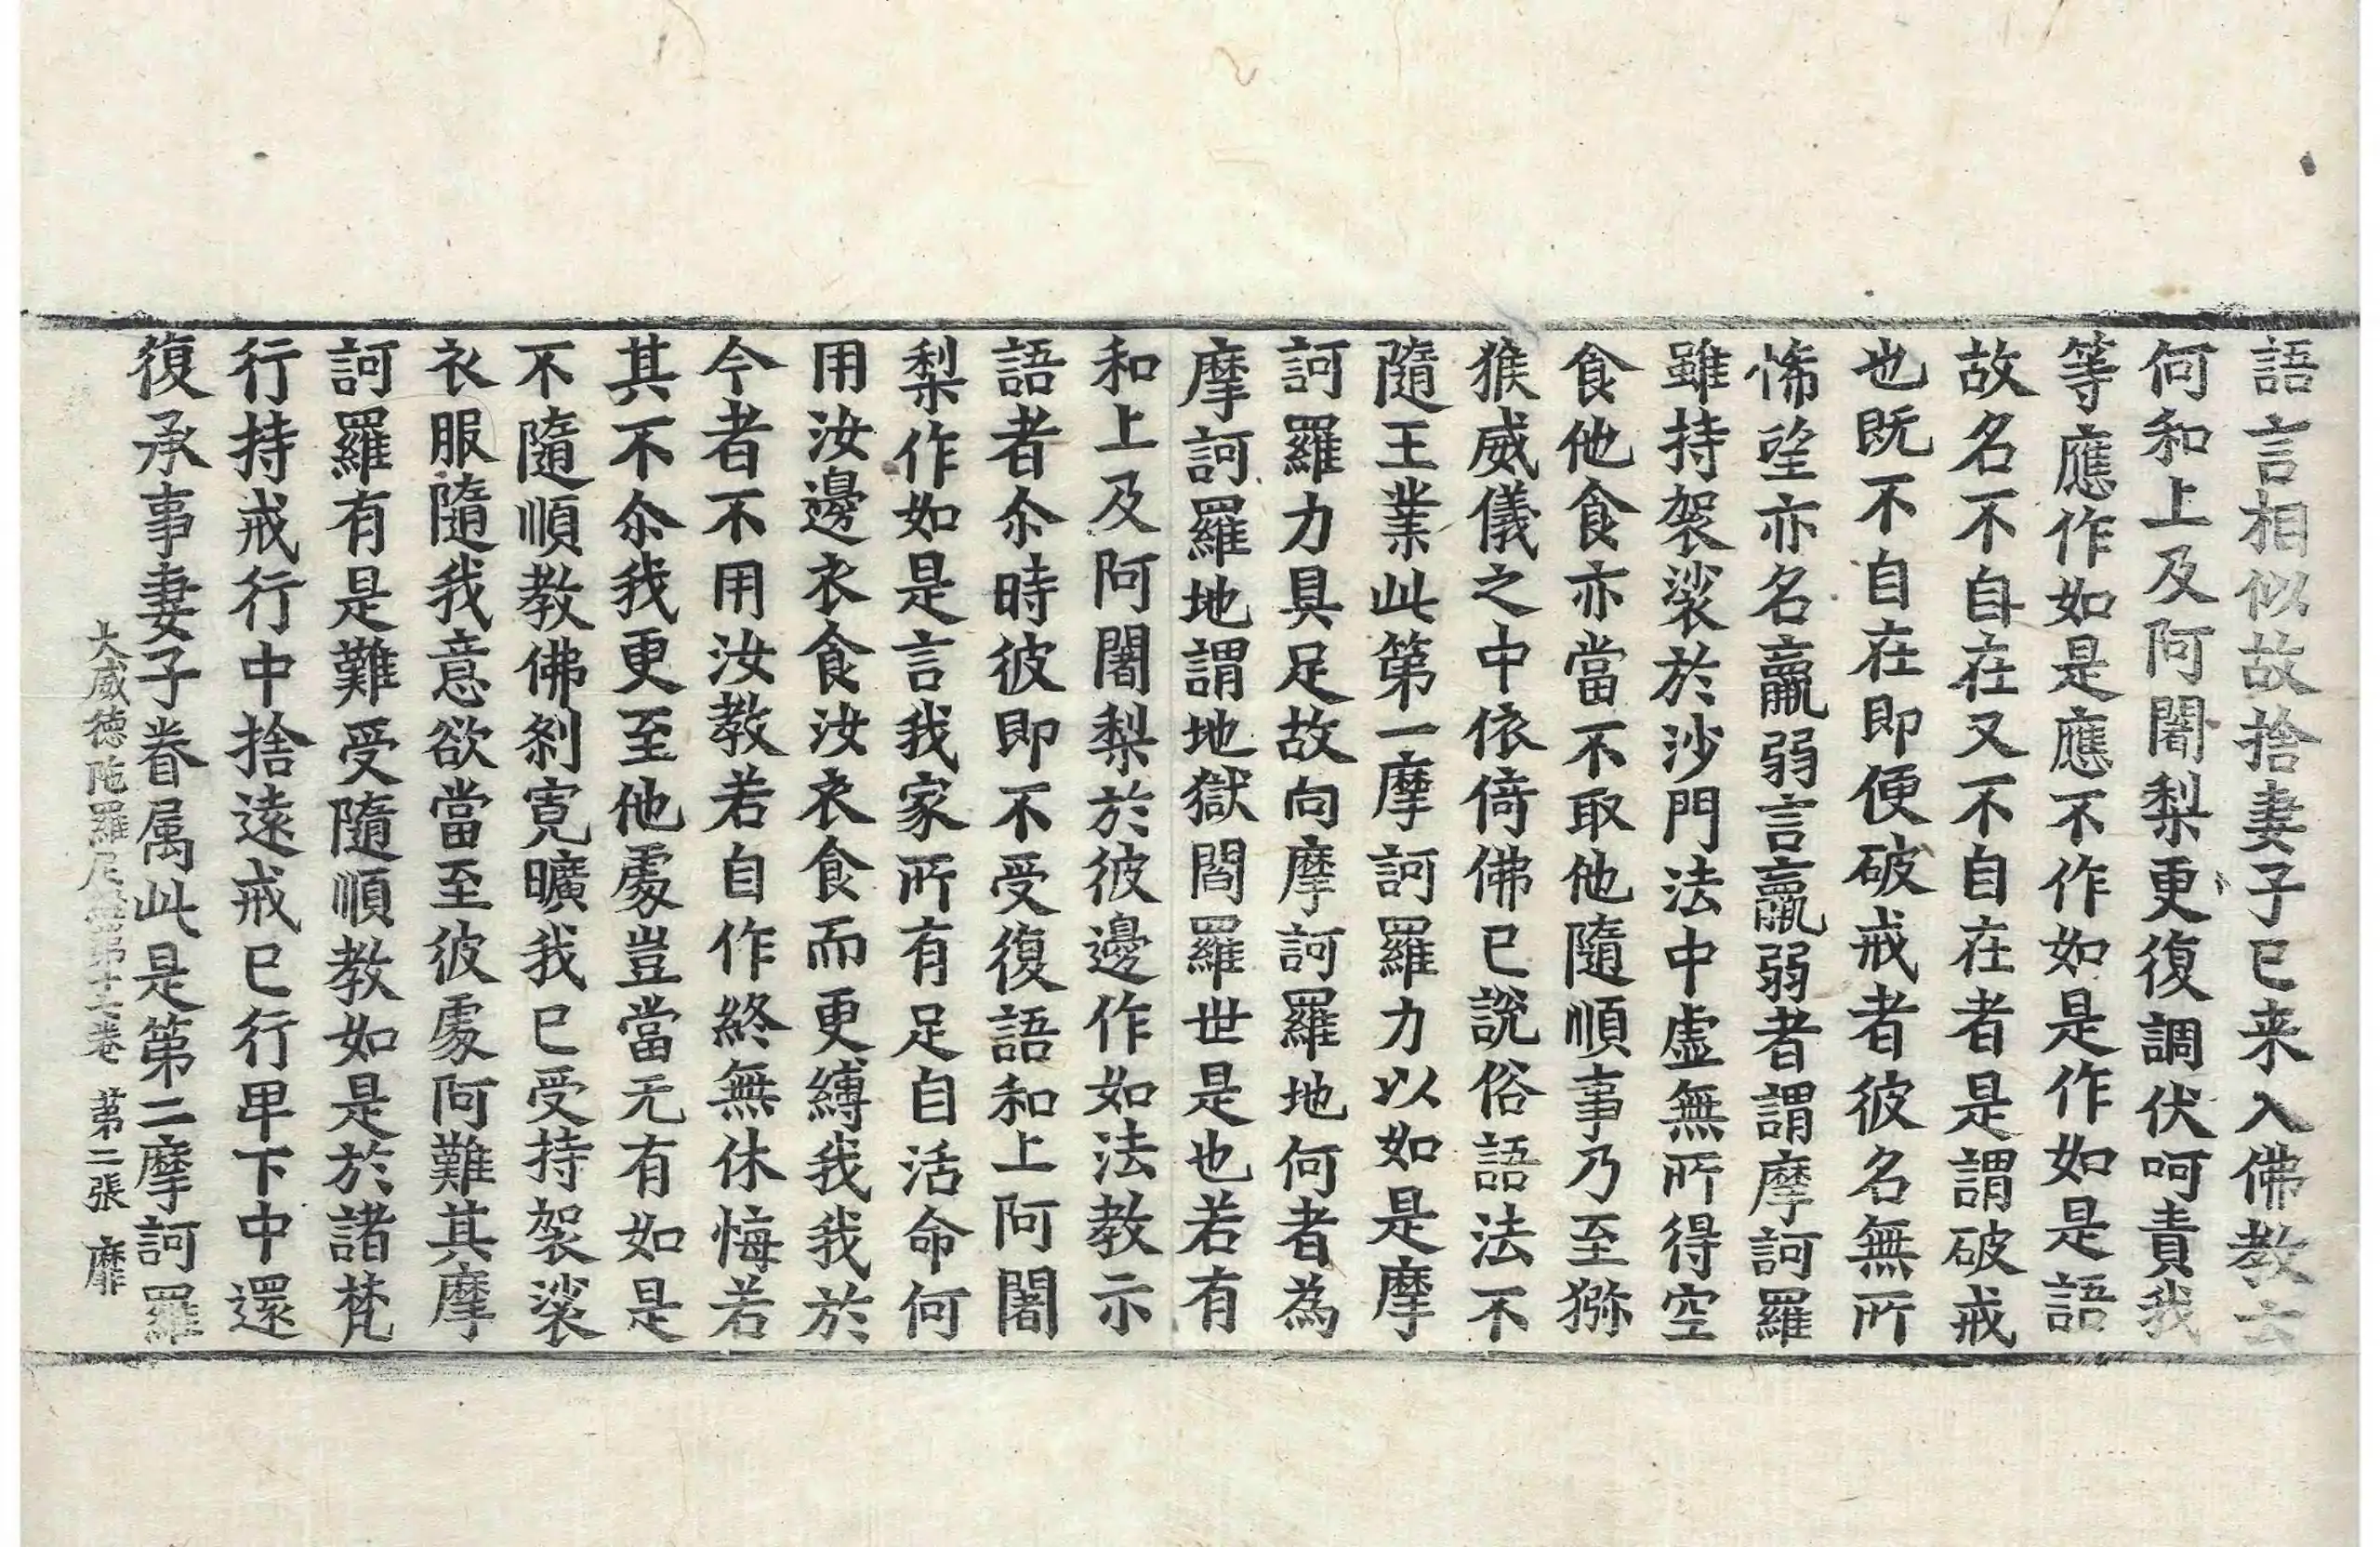 語言相似故捨妻子已来入佛教云
何和上及阿闍梨更復調伏呵責我
等應作如是應不作如是作如是語
故名不自在又不自在者是謂破戒
也既不自在即便破戒者彼名無所
悕望亦名羸弱言羸弱者謂摩訶羅
雖持袈裟於沙門法中虛無所得空
食他食亦當不取他隨順事乃至猕
猴威儀之中依倚佛已說俗語法不
隨王業此第一摩訶羅力以如是摩
訶羅力具足故向摩訶羅地何者為
摩訶羅地謂地獄閻羅世是也若有
和上及阿闍梨於彼邊作如法教示
語者尒時彼即不受復語和上阿闍
梨作如是言我家所有足自活命何
用汝邊衣食汝衣食而更縛我我於
今者不用汝教若自作終無休悔若
其不尒我更至他處豈當无有如是
不隨順教佛刹寬曠我已受持袈裟
衣服隨我意欲當至彼處阿難其摩
訶羅有是難受隨順教如是於諸梵
行持戒行中捨遠戒已行甲下中還
復承事妻子眷属此是第二摩訶羅
大威德陁羅尼經第十七卷 第二張 靡